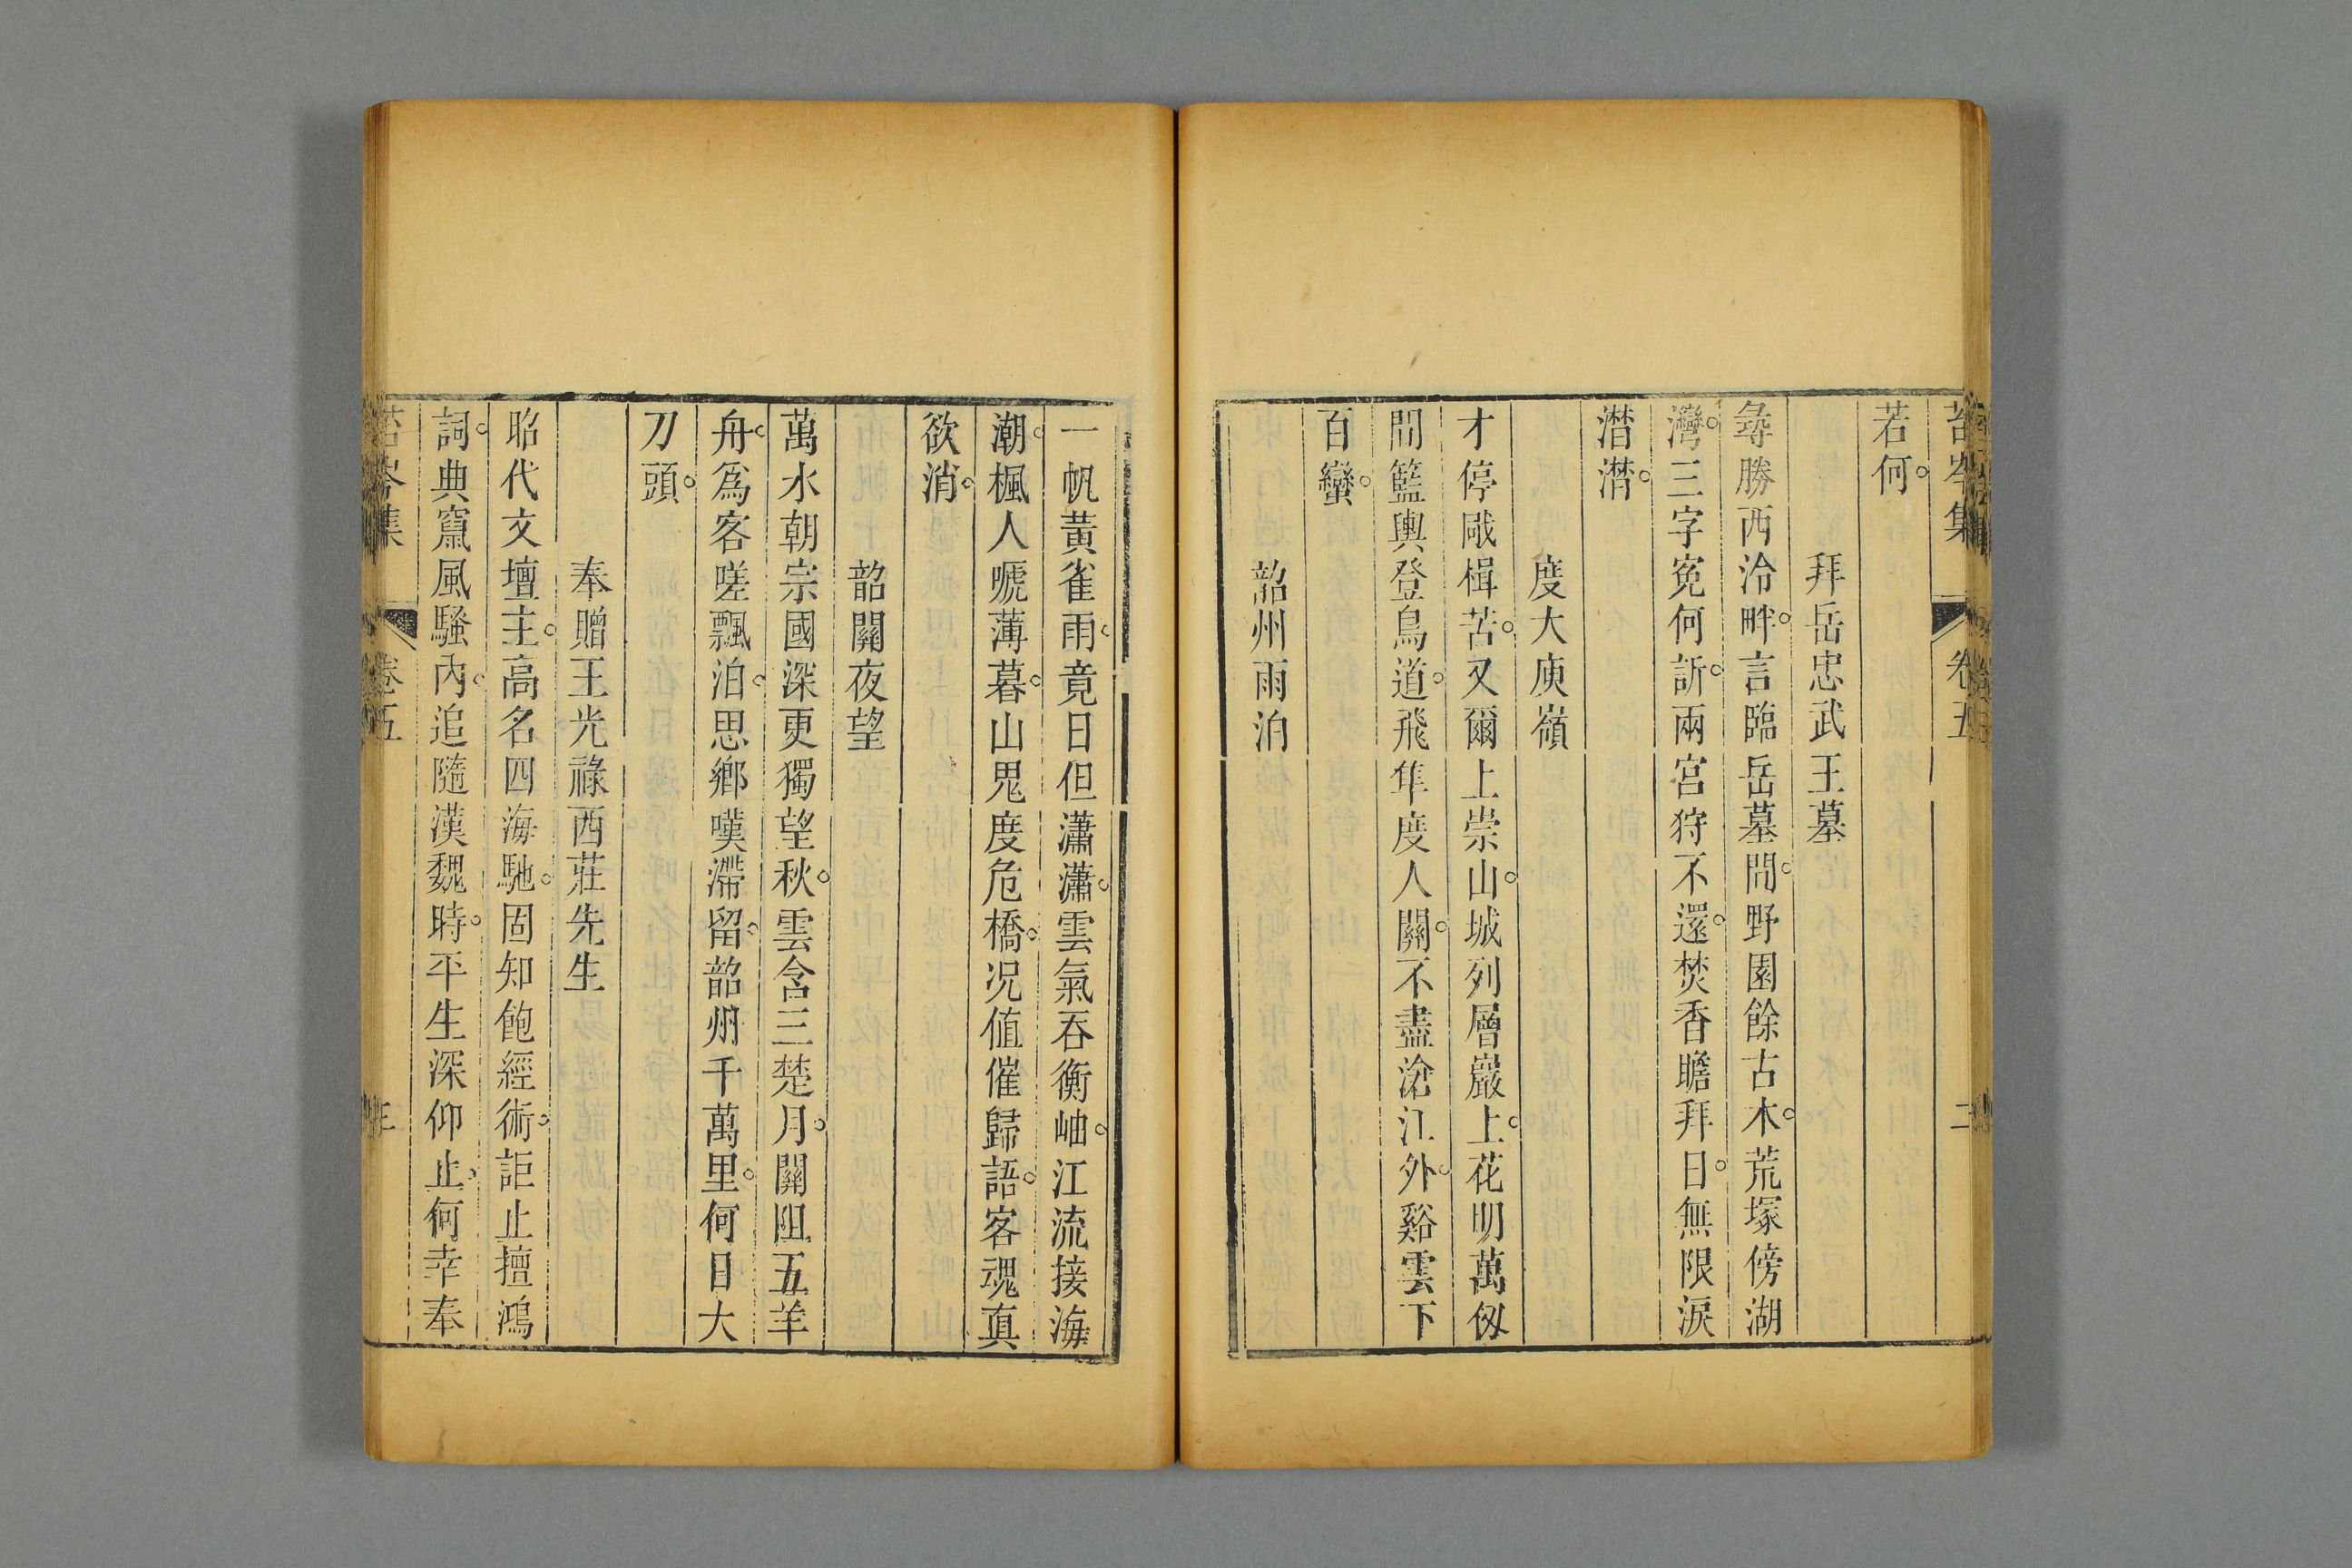 苔岑集 卷五 二
若何。
拜岳忠武王墓
尋勝西泠畔。言臨岳墓問。野園餘古木。荒塚傍湖
灣。三字寃何訴。兩宮狩不還。焚香瞻拜日。無限淚
潸潸。
度大庾嶺
才停戙楫苦。又爾上崇山。城列層巖上。花明萬仭
間籃輿登鳥道。飛隼度人關。不盡滄江外。谿雲下
百蠻。
韶州雨泊
一帆黃雀雨。竟日但瀟瀟。雲氣吞衡岫。江流接海
潮。楓人嗁薄暮。山鬼度危橋。况値催歸語。客魂眞
欲消。
韶關夜望
萬水朝宗國深更獨望秋。雲含三楚月。關阻五羊
舟。爲客嗟飄泊。思鄉嘆滯留。韶州千萬里。何日大
刀頭。
奉贈王光祿西莊先生
昭代文壇主。高名四海馳。固知飽經術。詎止擅鴻
詞。典竄風騷內。追隨漢魏時。平生深仰止。何幸奉
苔岑集 卷五 三